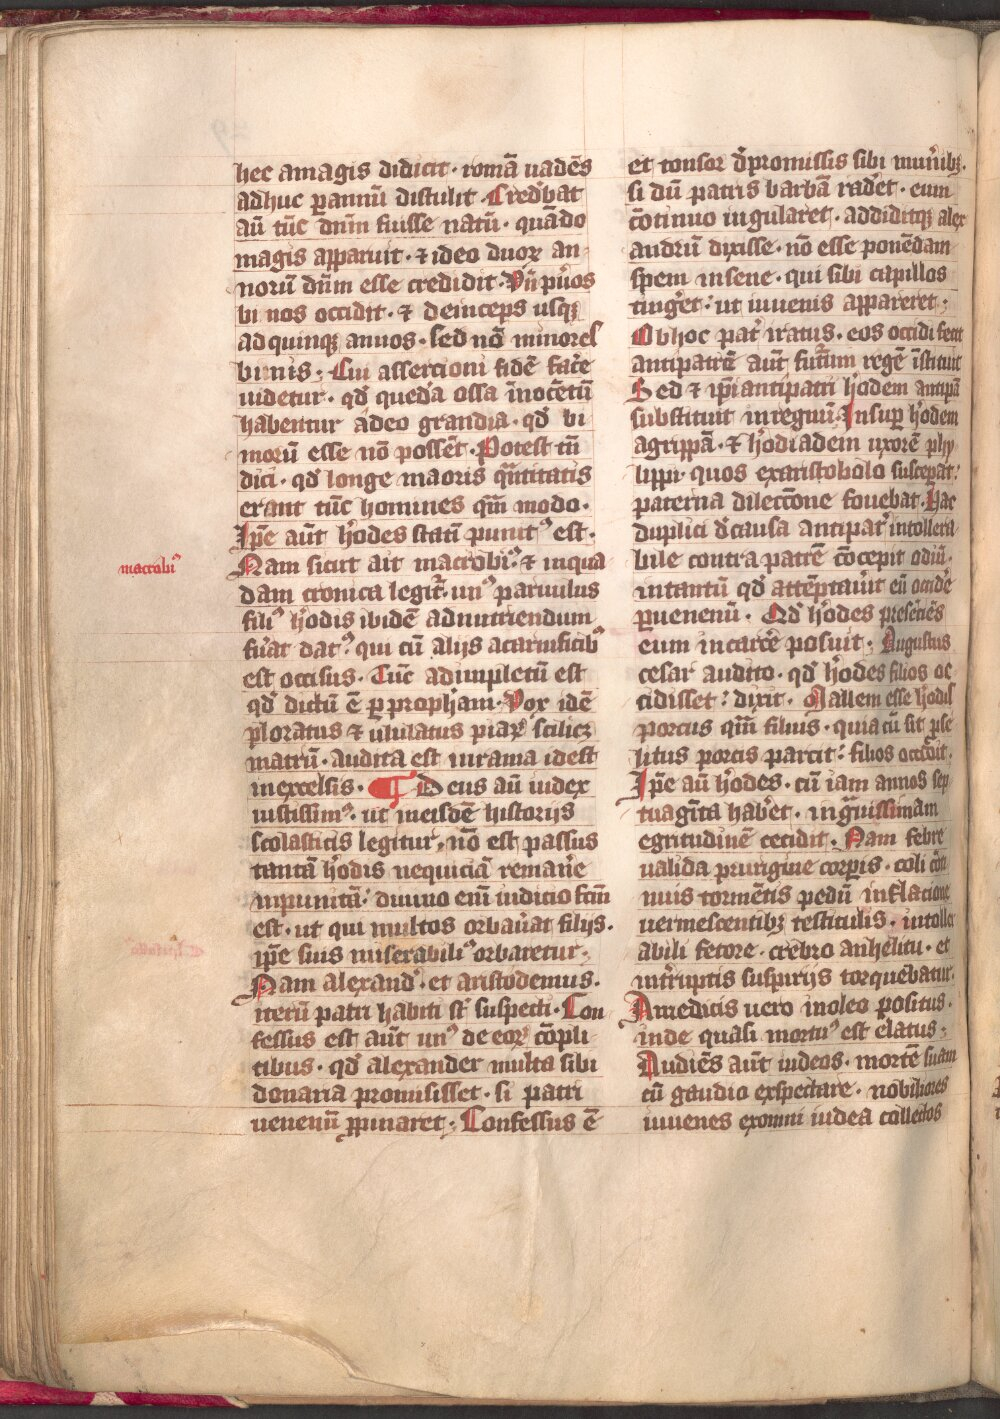 hec amagis didicit · romā uadēs
adhuc ꝑannū distulit · Cred̓bat
aū tūc dn̄m fuisse natū · quādo
magis apparuit · ⁊ ideo duoꝝ an-
norū dn̄m esse credidit · Vn̄ pu̓os
bi nos occidit · ⁊ deinceps usqꝫ
ad quinqꝫ annos · sed nō minores
binis · Cui assercioni fidē fac̓e
uidetur · qd̓ qued̓a ossa īnocētū
habentur adeo grandia · qd̓ bi
morū esse nō possēt · Potest tn̄
dici · qd̓ longe maoris qn̄titatis
erant tūc homines qm̄ modo ·
Ip̄e aūt h̓odes statī punitꝰ est ·
Nam sicut ait macrobiꝰ · ⁊ inqua
dam cronica legit᷑ · unꝰ paruulus
filiꝰ h̓odis ibidē adnutriendum
fu̓at datꝰ · qui cū alijs acarnificibꝰ
est occisus · Tūc adimpletū est
qd̓ dictū ē ꝑ proph̓am · Vox idē
ploratus ⁊ ululatus piaꝝ scilicꝫ
matrū · audita est inrama idest
inexcelsis · ¶ Deus aū iudex
iustissimꝰ · ut ineisdē historijs
scolasticis legitur, nō est passus
tantā h̓odis nequiciā reman̓e
inpunitā · diuino eni̅ iudicio fcm̄
est · ut qui multos orbau̓at filijs ·
ip̄e suis miserabiliꝰ orbaretur ·
Nam alexandꝰ · et aristodemus ·
iterū patri habiti st̓ suspecti · Con
fessus est aūt unꝰ de eoꝝ cōpli-
cibus · qd̓ alexander multa sibi
donaria promisisset · si patri
uenenū ꝓpinaret · Confessus ē
macrobiꝰ
et tonsor d̓promissis sibi mun̓ibꝫ ·
si dū patris barbā rad̓et · eum
cōtinuo iugularet · addiditqꝫ alex
andrū dixisse · nō esse ponēdam
spem insene · qui sibi capillos
ting̓et · ut iuuenis appareret ·
Obhoc pat̓ iratus · eos occidi fecit
antipatrē aūt futurum regē īstituit
Sed ⁊ ip̄i antipatri h̓odem antipā
substituit inregnū · Insuꝑ h̓odem
agrippā · ⁊ h̓odiadem uxorē phy
lippi · quos exaristobolo susceꝑat ·
paterna dilectiōne fouebat · Hac
duplici d̓causa antipat̓ intollera
bile contra patrē cōcepit odiū ·
intantū qd̓ attēptau̓it eū occid̓e
ꝑuenenū · Qd̓ h̓odes presēciēs
eum incarc̓e posuit · Augustus
cesar audito · qd̓ h̓odes filios oc
cidisset · dixit · Mallem esse h̓odis
porcus qm̄ filius · quia cū sit ꝓse
litus porcis parcit · filios occidit ·
Ip̄e aū h̓odes · cū iam annos sep
tuagīta hab̓et · ing̓uissimam
egritudinē cecidit · Nam febre
ualida prurigine corꝑis · coli cōti
nuis tormētis pedū inflacione
uermescentibꝫ testiculis · intoller
abili fetore · crebro anhelitu · et
int̓ruptis suspirijs torquebatur ·
Amedicis uero inoleo positus ·
inde quasi mortuꝰ est elatus ·
Audiēs aūt iudeos · mortē suam
cū gaudio exspectare · nobiliores
iuuenes exomni iudea collectos